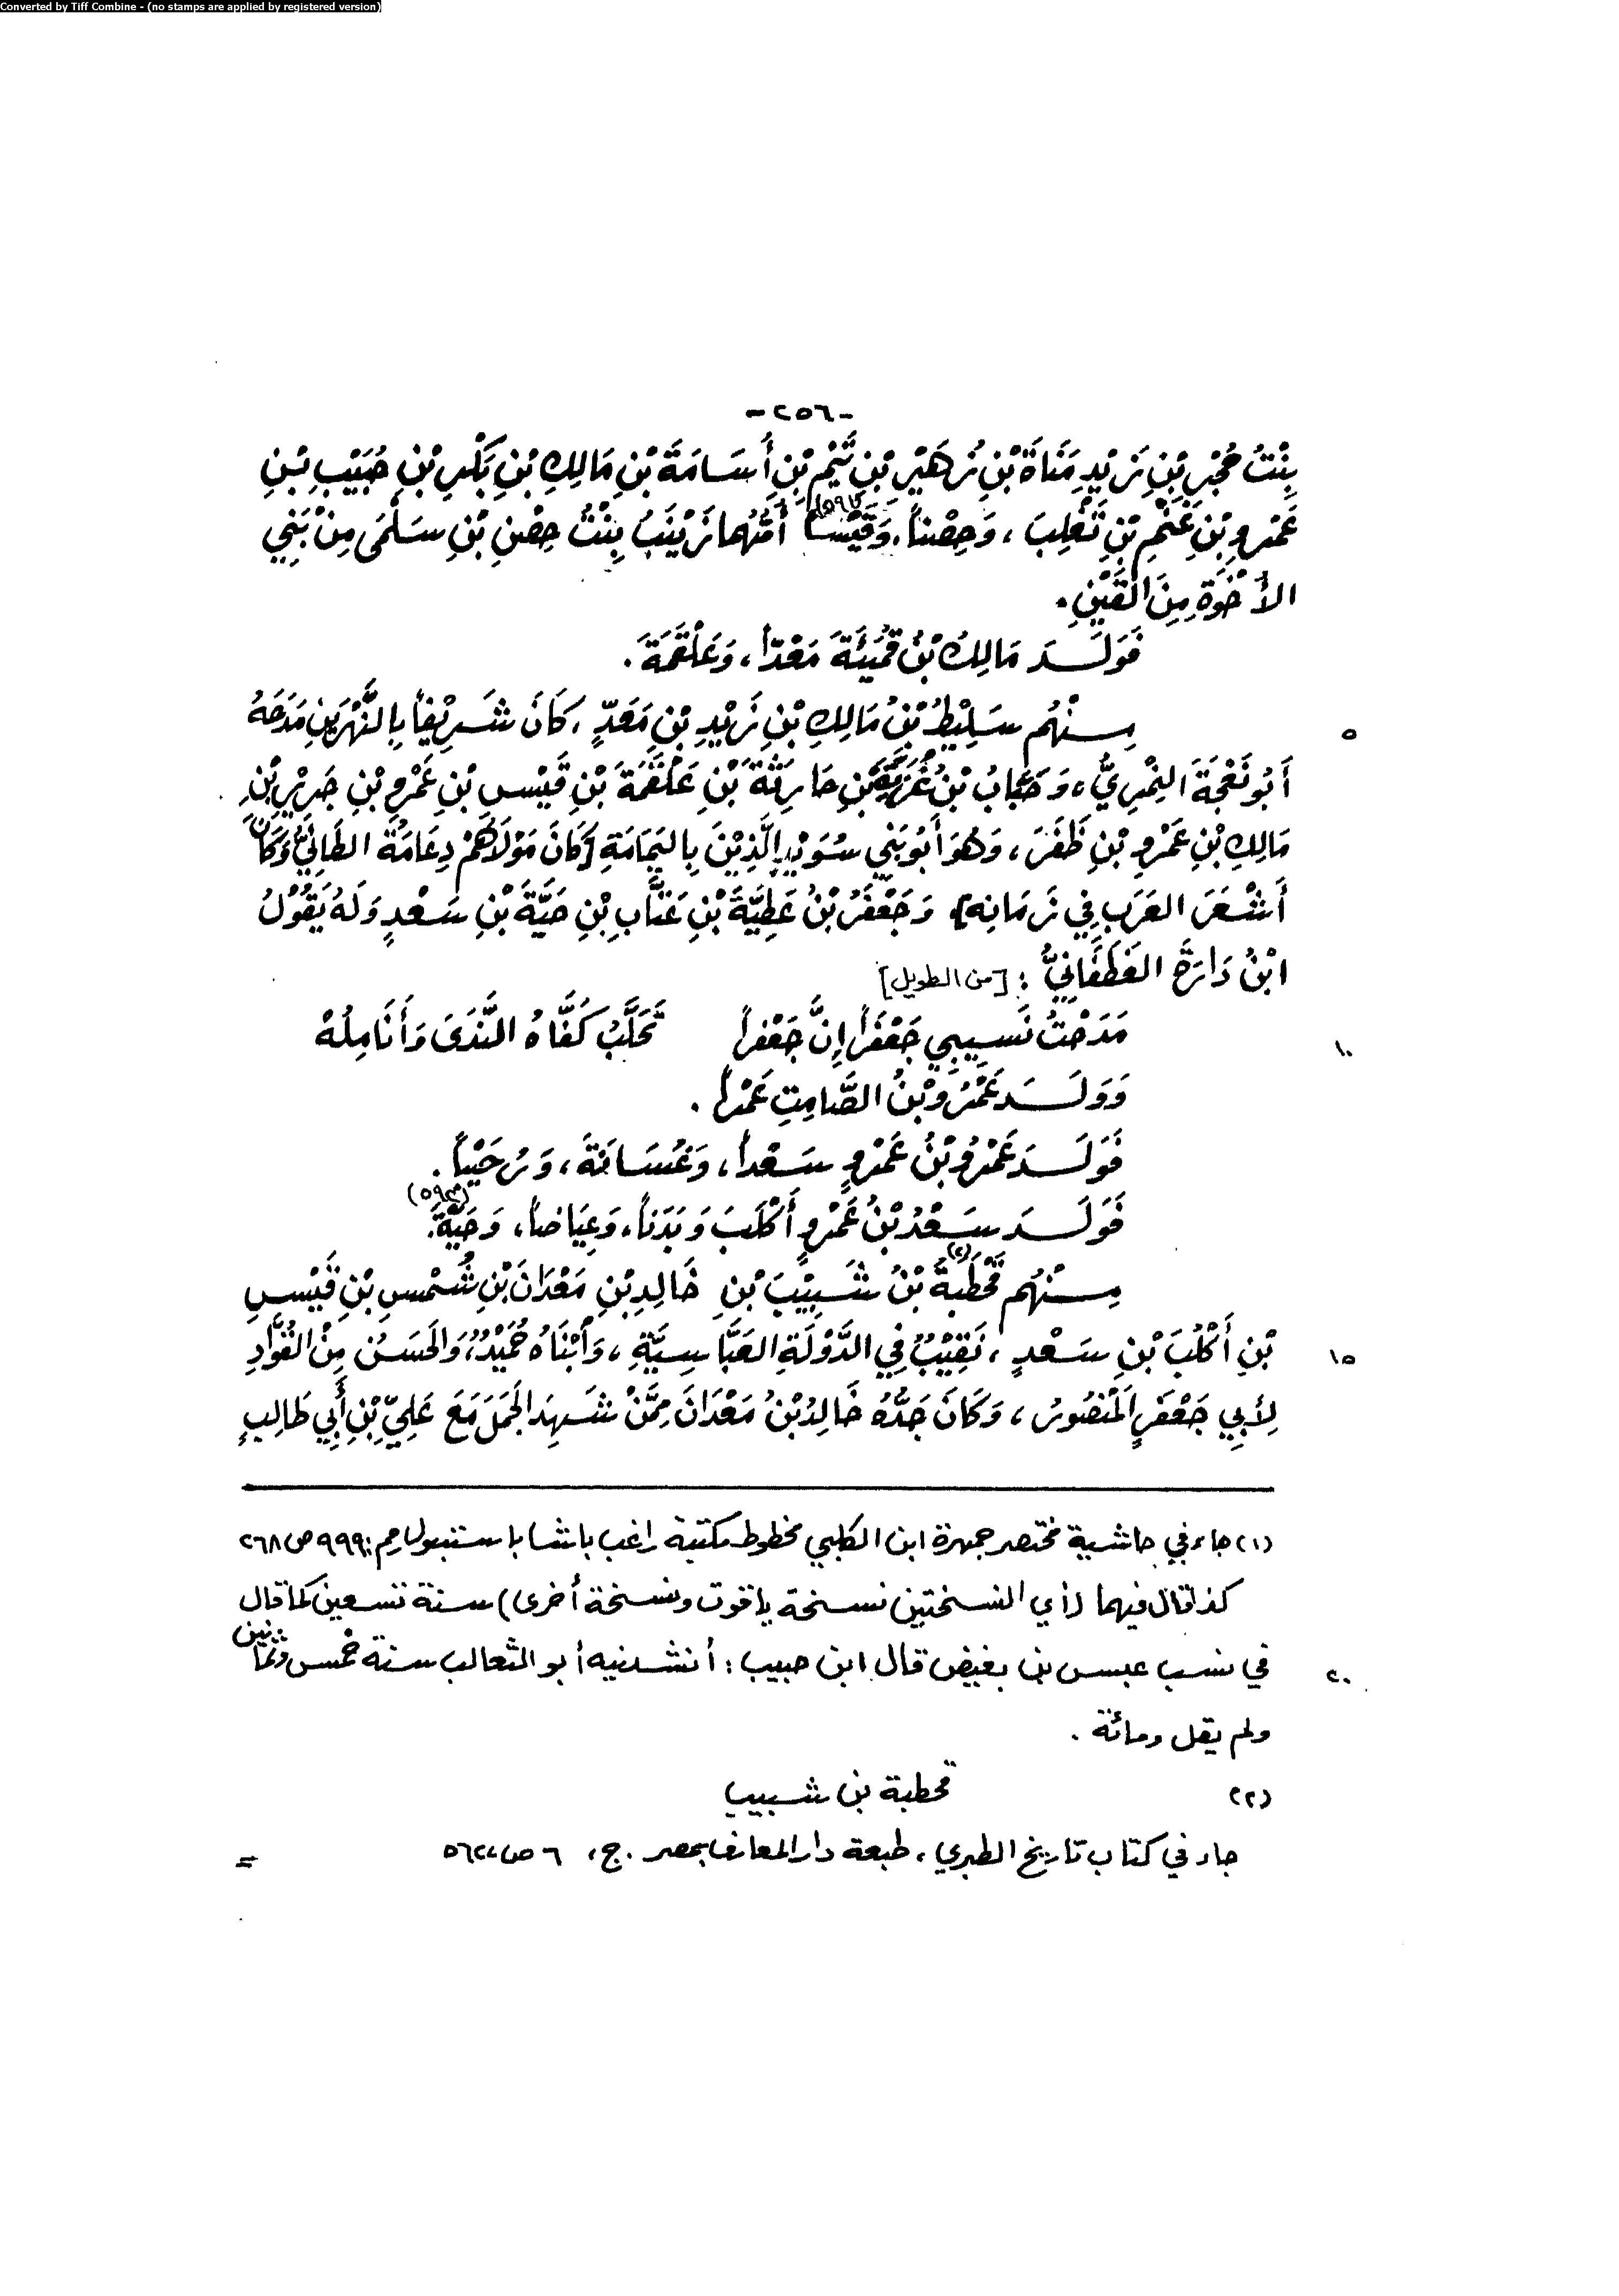 Converted by Tiff Combine - (no stamps are applied by registered version)
-٢٥٦-
بِنْتُ حُجْرِ بْنِ زَيْدِ مَنَاةَ بْنِ زُهَيْرِ بْنِ تَيْمِ بْنِ أُسَامَةَ بْنِ مَالِكِ بْنِ بَكْرِ بْنِ حُبَيْبِ بْنِ
عَمْرِو بْنِ غَنْمِ بْنِ تَغْلِبَ ، وَحِصْناً، وَقَيْساً أُمُّهُمَا زَيْنَبُ بِنْتُ حِصْنِ بْنِ سَلْمَى مِنْ بَنِي
الأُخْوَةِ مِنَ القَيْنِ.
فَوَلَدَ مَالِكُ بْنُ قُمَيْئَةَ مَعْدّاً، وَعَلْقَمَةَ.
مِنْهُم سَلِيْطُ بْنُ مَالِكِ بْنِ زَيْدِ بْنِ مَعَدٍّ ، كَانَ شَرِيْفاً بِالنَّهْرَيْنِ مَدَحَهُ
٥
أَبُو نَعْجَةَ النِمْرِيُّ، وَحَجَّابُ بْنُ بْنِ حَارِثَةَ بْنِ عَلْقَمَةَ بْنِ قَيْسِ بْنِ عَمْرِو بْنِ جَرِيْرِ بْنِ
مَالِكِ بْنِ عَمْرِو بْنِ ظَفَرَ ، وَهُوَ أَبُو بَنِي سُوَيْدٍ الَّذِيْنَ بِاليَمَامَةِ [كَانَ مَوْلَاهُمْ دِعَامَةُ الطَائِيُّ وَكَانَ
أَشْعَرَ العَرَبِ فِي زَمَانِهِ] وَجَعْفَرُ بْنُ عَطِيَّةَ بْنِ عَتَّابِ بْنِ حَيَّةَ بْنِ سَعْدٍ وَلَهُ يَقُوْلُ
ابْنُ دَارَةَ الغَطَفَانِيُّ : [من الطويل]
مَدَحْتُ نَسِيبِي جَعْفَراً إِنَّ جَعْفراً تَحَلَّبُ كَفَّاهُ النَّدَى وَأَنَامِلُهْ
١٠
وَوَلَدَ عَمْرُو بْنُ الصَّامِتِ عَمْراً .
فَوَلَدَ عَمْرُو بْنُ عَمْرٍو سَعْداً، وَغُسَانَةَ، وَرُحَيْباً.
فَوَلَدَ سَعْدُ بْنُ عَمْرٍو أَكْلَبَ وَبَدَناً، وَعِيَاضاً، وَحَيَّةَ.
مِنْهُم قَحْطَبَةُ (٢) بْنُ شَبِيْبَ بْنِ خَالِدِ بْنِ مَعْدَانَ بْنِ شُمْسِ بْنِ قَيْسِ
بْنِ أَكْلُبَ بْنِ سَعْدٍ ، نَقِيْبٌ فِي الدَّوْلَةِ العَبَّاسِيَّةِ ، وَابْنَاهُ حُمَيْدٌ، وَالحَسَنُ مِنْ القُوَّادِ
١٥
لِأَبِي جَعْفَرٍ المَنْصُورِ ، وَكَانَ جَدُّهُ خَالِدُ بْنُ مَعْدَانَ مِمَّنْ شَهِدَ الجَمَلَ مَعَ عَلِيِّ بْنِ أَبِي طَالِبٍ
(١) جاء في حاشية مختصر جمهرة ابن الكلبي مخطوط مكتبة راغب باشا باستنبول رقم: ٩٩٩ ص ٢٦٨
كذا قال فيهما (أي النسختين نسخة ياقوت ونسخة أخرى) سنة تسعين كما قال
في نسب عبس بن بغيض قال ابن حبيب : أنشدنيه أبو الثعالب سنة خمس وثمانين
٢٠
ولم يقل ومائة .
(٢) قحطبة بن شبيب
جاء في كتاب تاريخ الطبري ، طبعة دار المعارف بمصر . ج، ٦ ص
=